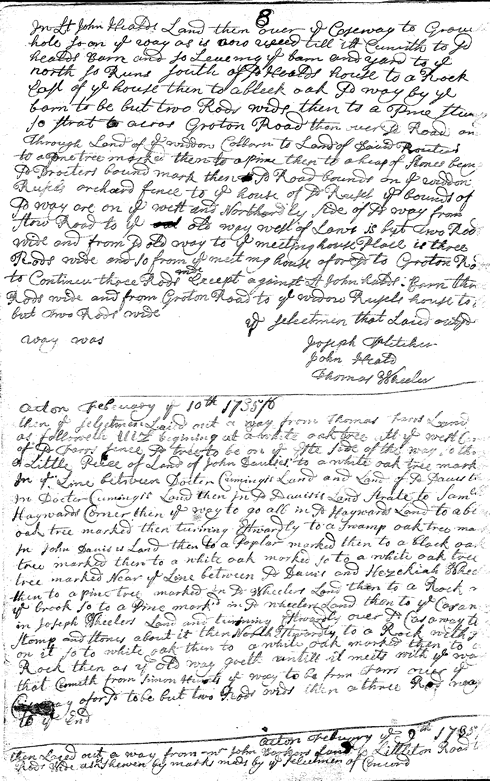 8
In Lt John Healds Land then over ye Caseway to Grow
hole so on ye way as is now used till it Cumith to sd
healds Barn and so Leaveing ye barn and yard to ye
north so Runs South of sd Healds house to a Rock
East of ye house then to a bleck oak sd way by ye
barn to be but two Rods wide then to a Pine
so strat to acros Groton Road then over sd Road on
through Land of ye widdow Colborn to Land of Said
to a pinetree marked then to a pine then to a heap of stones being
sd Procters bound mark then sd Road bounds on ye widdow
Rusels orchard fence to ye house of sd Rusel ye bounds of
sd way are on ye west and Northardly side of sd way from
Stow Road to ye old way west of Laws is but two Rod
wide and from sd old way to ye meeting house Place is three
Rods wide and so from ye meeting house aforsd to Groton Ro
to Continue three Rods wide Except against Lt John Healds Barn then
Rods wide and from Groton Road to ye widow Rusels house to
but two Rods wide
ye Selectmen that Laid out sd
way was
Joseph Fletcher
John Heald
Thomas Wheeler
Acton February ye 10th 1735/6
then ye Selectmen Laid out a way from Thomas Farrs Land
as followeth viz begining at a white oak tree att ye west Corn
of sd Farrs fence sd tree to be on ye side of the way so thro
a Little Peice of Land of John Davises to a white oak tree mark
In ye Line between Docter Cumings Land and Land of sd Davis
In Docter Cumings Land then in sd Davisis Land strate to Saml
Haywards Corner then ye way to go all in sd Haywards Land to a
oak tree marked then turning Estwardly to a Swamp oak tree mar
In John Davises Land then to a Poplar marked then to a black oak
tree marked then to a white oak marked so to a white oak tree
tree marked Near ye Line between sd Davis and Hezekiah Whee
then to a pine tree marked in sd Wheelers Land then to a Rock
ye brook so to a Pine markd in sd wheelers Land then to ye
in Joseph Wheelers Land and turning Estwardly over sd Casaway to
Stomp and Stones about it then North Estwardly to a Rock with
on it so to white oak then to a white oak marked then to a
Rock then as ye old way goeth untill it meets with ye wa
that Cometh from Simon Hunts ye way to be from Farrs
way aforsd to be but two Rods wide then a three Rod way
to ye End
Acton February ye 9th 1735
then Laied out a way from mr John Barkers Land to Littleton Road
Rods wide as shewen by marks made by ye selectmen of Concord